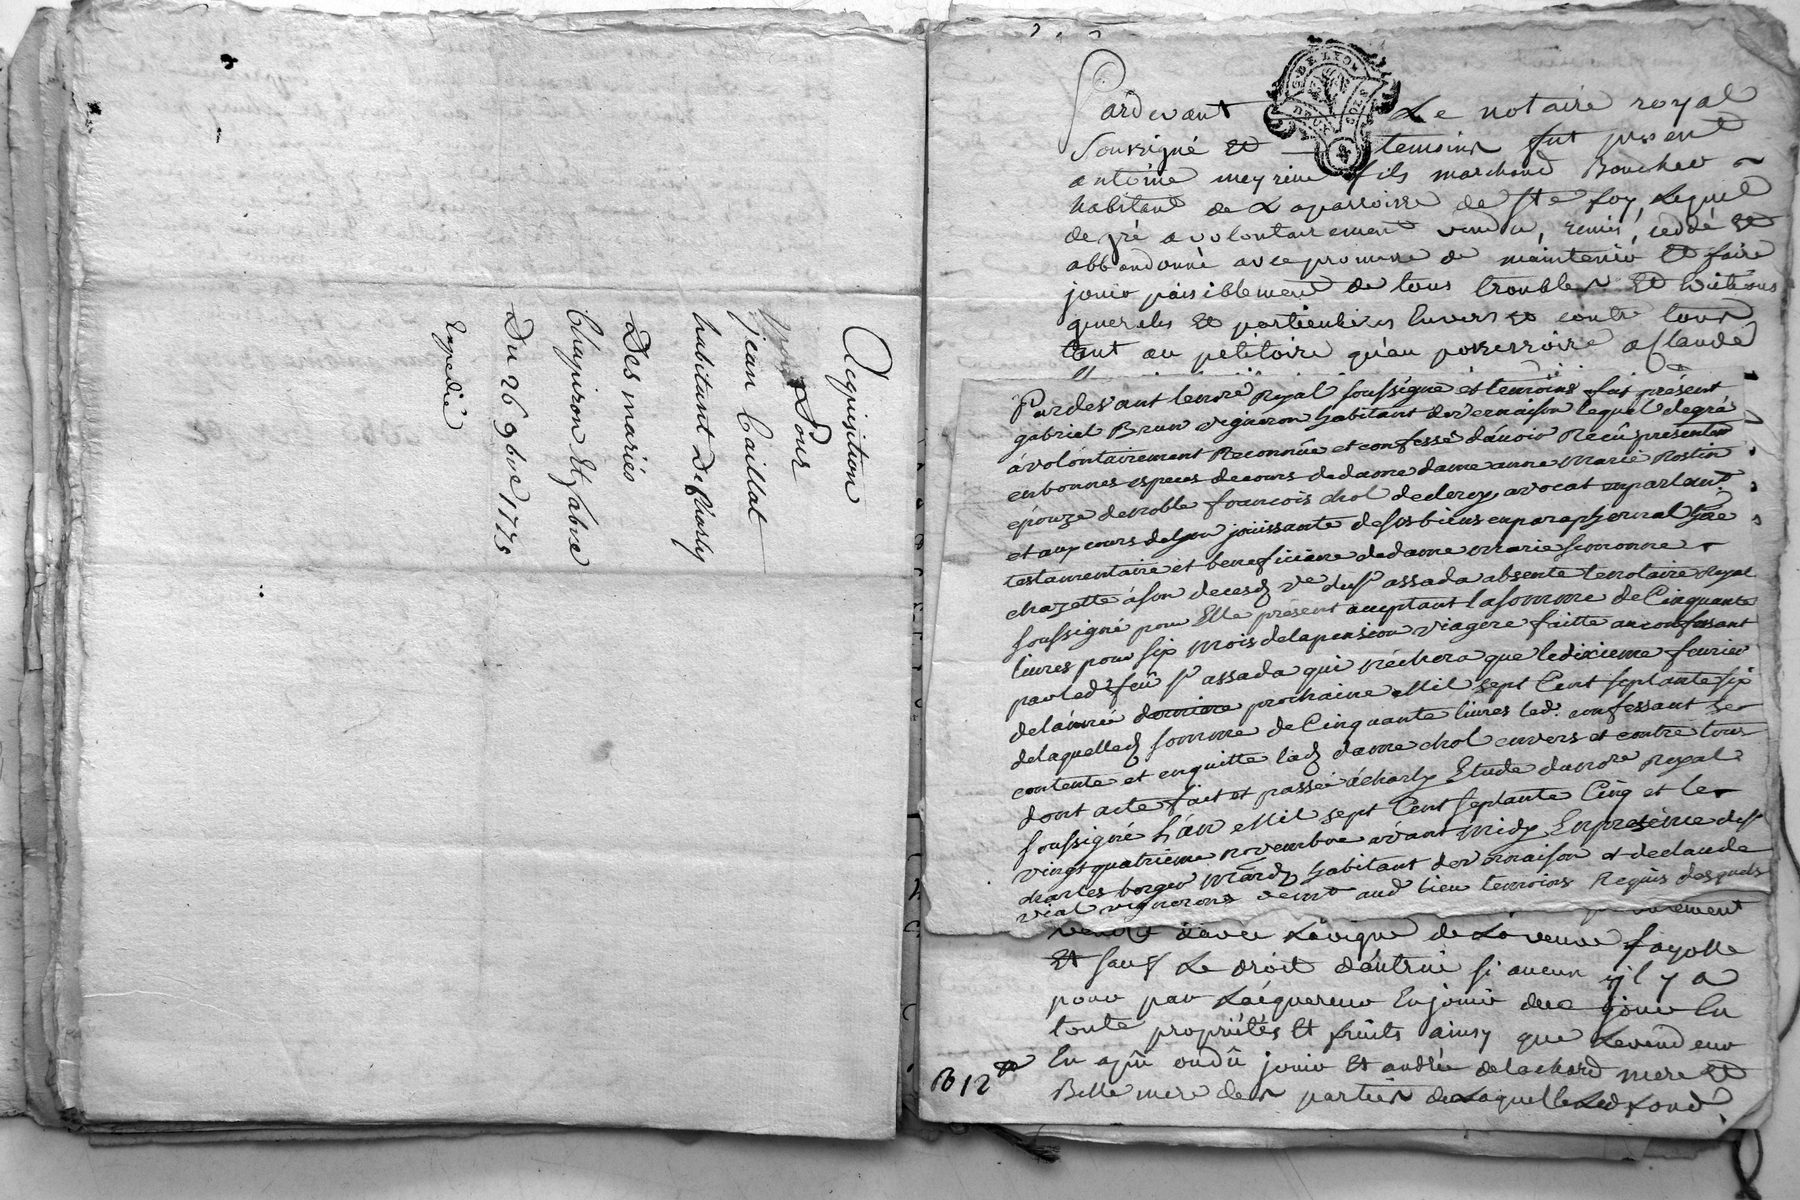 Acquisition
Pour
jean Caillat
habitant De Charly
Des mariés
Chapiron Et fabre
Du 26 9bre 1775
Expedié
Pardevant Le notaire royal
Soussigné Et temoins fut present
antoine meyrieu fils marchand Boucher
habitant de La parroisse de Ste foy, Lequel
de gré a volontairement vendu, remis, ceddé Et
abbandonné avec promesse de maintenir Et faire
jouir paisiblement de tous troubles Et
querelles Et particuliers Envers Et contre tous
tant au petitoire qu'au possessoire a Claude
Pardevant lenore Royal soussigné et temoins fut présent
gabriel Brun vigneron habitant de vernaison lequel degré
á volontairement Reconnüe et confessé dávoir Reçû presentem
en bonnes especes de cours de dame dame anne Marie Rostin
épouze de noble francois chol declerey, avocat en parlant
et aux cours de lyon joüissante de ses biens en paraphernal hére
testamentaire et beneficiaire de dame marie
chazette á son deces ve du sr assada absente le notaire Royal
soussigné pour Elle présent acceptant la somme de Cinquante
livres pour six mois de la pension viagere faitte au confessant
par led feû sr assada qui n'échera que le dixieme fevrier
de lánnée derniere prochaine Mil sept Cent septante six
de laquelle d somme de Cinquante livres led. confessant se
contente et en quitte lad dame chol envers et contre tous
dont acte fait et passé á charly Etude dunore Royal
soussigné L'an Mil sept Cent septante Cinq et le
vingt quatrieme novembre avant midy En presence de sr
charles borger mard habitant de vernaison et de claude
vial vigneron dem aud lieu temoins Requis desquels
davec La vigne de La veuve fayolle
Et sauf Le droit dautrui si aucun y l y a
pour par Laéquereur En jouir dece jour En
toute propriétés Et fruits ainsy que Levendeur
En a pû ou dû jouir Et andrée delachard mere Et
Belle mere des parties de Laquelle Led fond